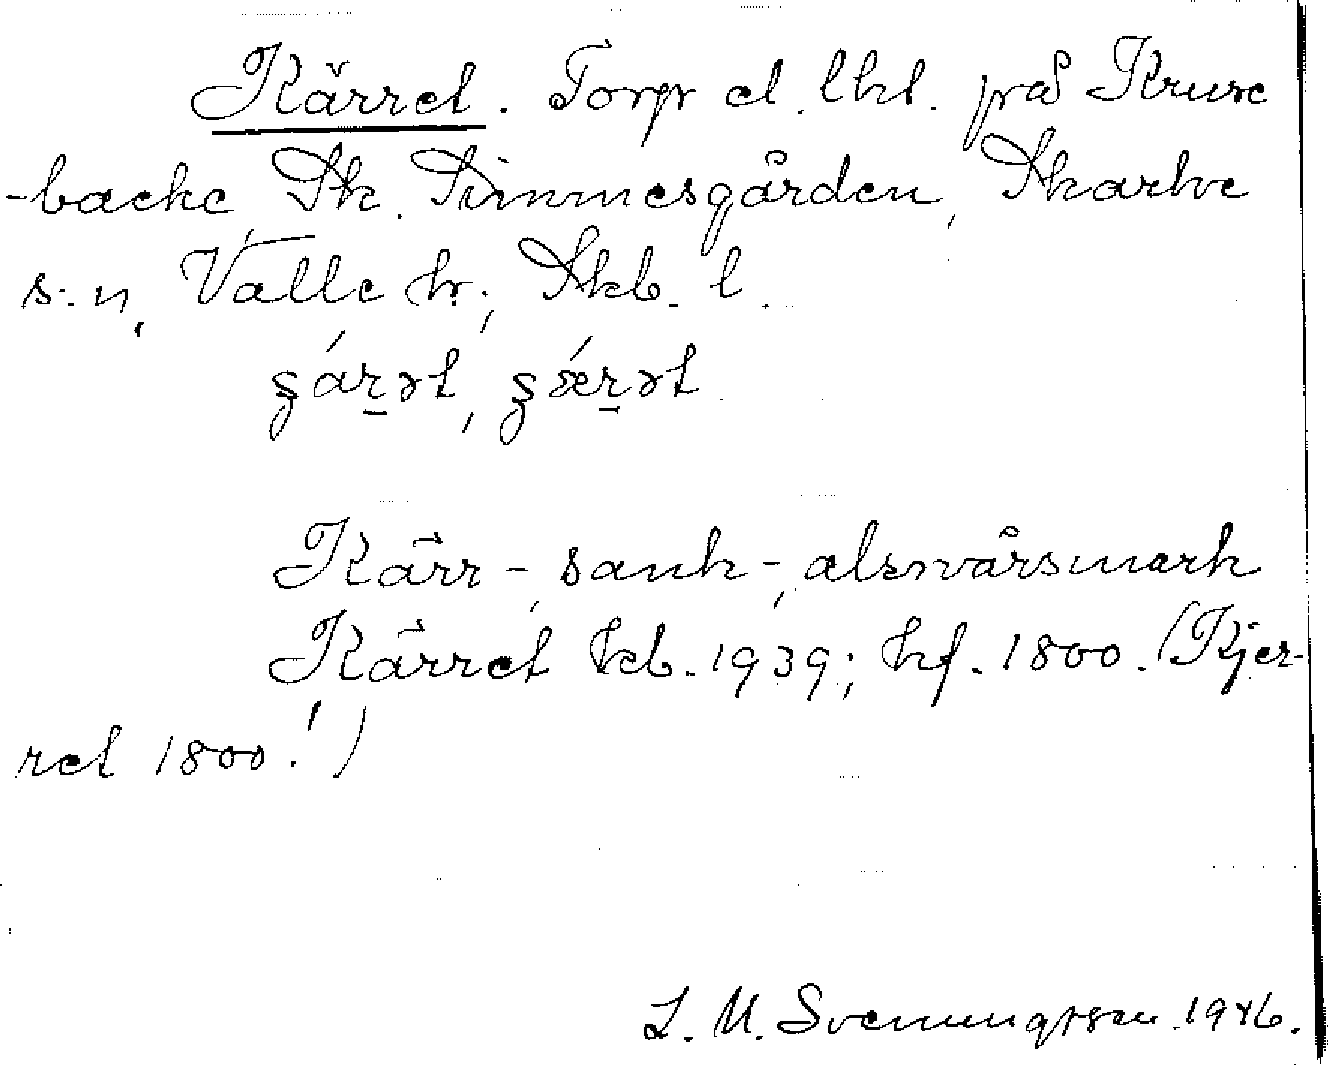 Kärret. Torp el. lht. på Kruse
-backe, Sk. Simmesgården, Skarke
s:n, Valle hr; Skb. l.
ʂár̲ət, ʂǽr̲ət
Kärr-, sank-, alsnårsmark
Kärret kb. 1939; hf. 1800. (Kjer-
ret 1800!)
L. M. Svenungsson 1946.